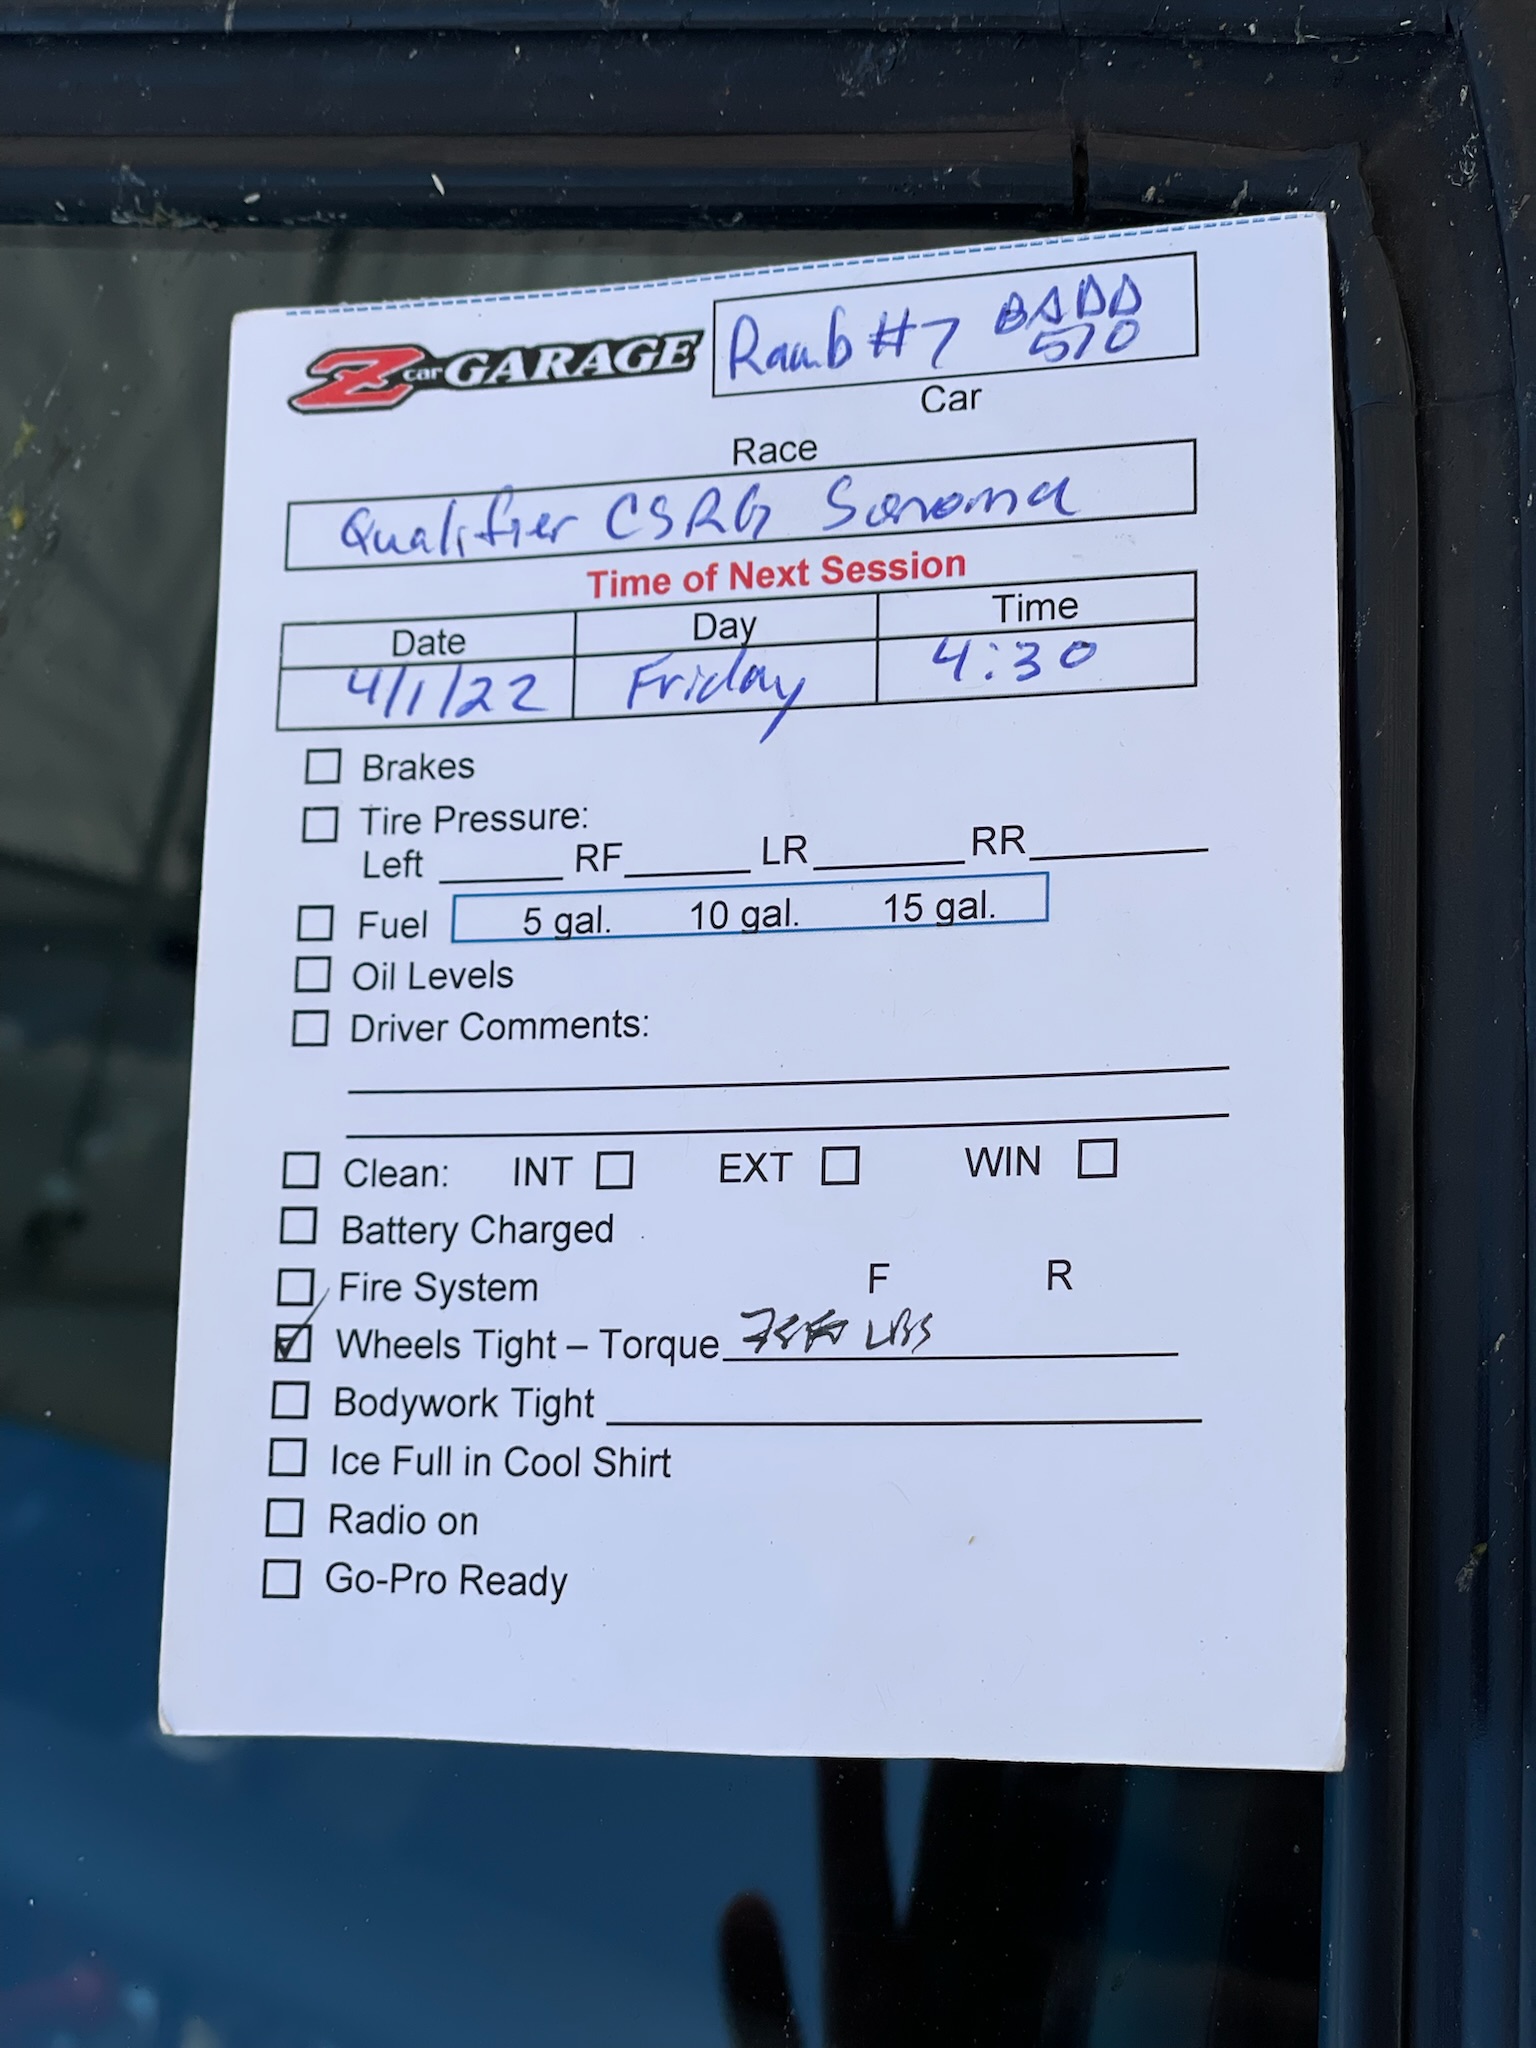 Z car GARAGE
#7 BADD
570
Car
Race
Qualifier CSRG Sonoma
Time of Next Session
Date Day Time
4/1/22 Friday 4:30
Brakes
Tire Pressure:
Left RF LR RR
Fuel 5 gal. 10 gal. 15 gal.
Oil Levels
Driver Comments:
Clean: INT EXT WIN
Battery Charged
Fire System F R
Wheels Tight – Torque LBS
Bodywork Tight
Ice Full in Cool Shirt
Radio on
Go-Pro Ready